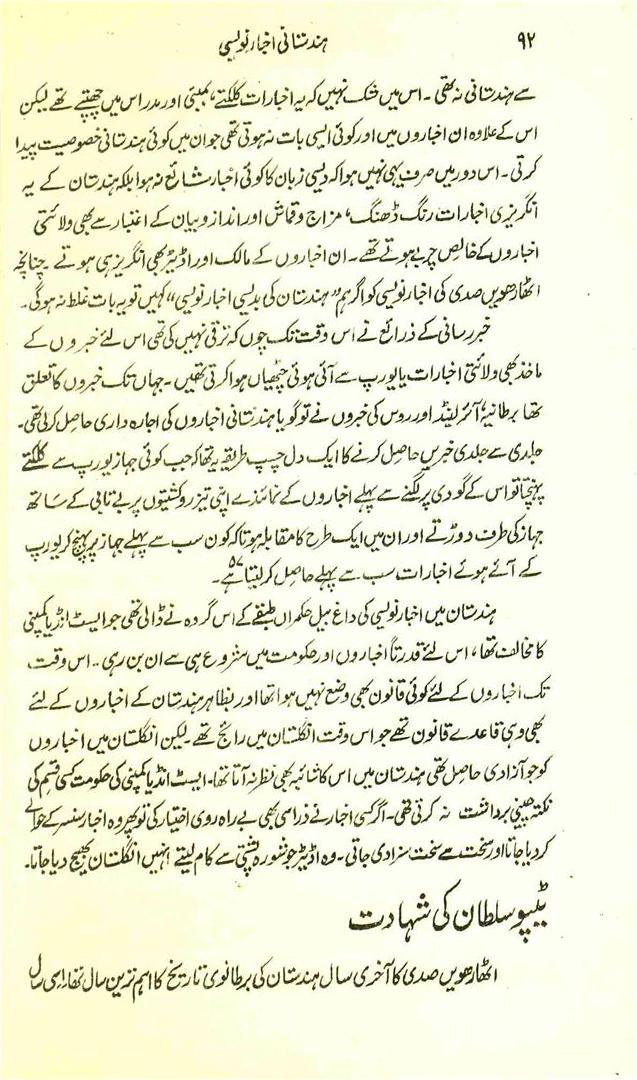 ۹۲
ہندستانی اخبار نویسی
سے ہندستانی نہ تھی ۔ اس میں شک نہیں کہ یہ اخبارات کلکتے، بمبئی اور مدراس میں چھپتے تھے لیکن
اس کے علاوہ ان اخباروں میں اور کوئی ایسی بات نہ ہوتی تھی جو ان میں کوئی ہندستانی خصوصیت پیدا
کرتی ۔ اس دور میں صرف یہی نہیں ہوا کہ دیسی زبان کا کوئی اخبار شائع نہ ہوا بلکہ ہندستان کے یہ
انگریزی اخبارات رنگ ڈھنگ، مزاج و قماش اور انداز و بیان کے اعتبار سے بھی ولائتی
اخباروں کے خالص چربے ہوتے تھے ۔ ان اخباروں کے مالک اور اڈیٹر بھی انگریز ہی ہوتے ۔ چنانچہ
اٹھارھویں صدی کی اخبار نویسی کو اگر ہم "ہندستان کی بدیسی اخبار نویسی" کہیں تو یہ بات غلط نہ ہوگی ۔
خبر رسانی کے ذرائع نے اس وقت تک چوں کہ ترقی نہیں کی تھی اس لئے خبروں کے
ماخذ بھی ولائتی اخبارات یا یورپ سے آئی ہوئی چٹھیاں ہوا کرتی تھیں ۔ جہاں تک خبروں کا تعلق
تھا برطانیہ، آئرلینڈ اور روس کی خبروں نے تو گویا ہندستانی اخباروں کی اجارہ داری حاصل کرلی تھی ۔
جلدی سے جلدی خبریں حاصل کرنے کا ایک دل چسپ طریقہ یہ تھا کہ جب کوئی جہاز یورپ سے کلکتے
پہنچتا تو اس کے گودی پر لگنے سے پہلے اخباروں کے نمائندے اپنی تیز رو کشتیوں پر بے تابی کے ساتھ
جہاز کی طرف دوڑتے اور ان میں ایک طرح کا مقابلہ ہوتا کہ کون سب سے پہلے جہاز پر پہنچ کر یورپ
کے آئے ہوئے اخبارات سب سے پہلے حاصل کر لیتا ہے ۔ ۵۷
ہندستان میں اخبار نویسی کی داغ بیل حکمراں طبقے کے اس گروہ نے ڈالی تھی جو ایسٹ انڈیا کمپنی
کا مخالف تھا، اس لئے قدرتاً اخباروں اور حکومت میں شروع ہی سے ان بن رہی ۔ اس وقت
تک اخباروں کے لئے کوئی قانون بھی وضع نہیں ہوا تھا اور بظاہر ہندستان کے اخباروں کے لئے
بھی وہی قاعدے قانون تھے جو اس وقت انگلستان میں رائج تھے ۔ لیکن انگلستان میں اخباروں
کو جو آزادی حاصل تھی ہندستان میں اس کا شائبہ بھی نظر نہ آتا تھا ۔ ایسٹ انڈیا کمپنی کی حکومت کسی قسم کی
نکتہ چینی برداشت نہ کرتی تھی ۔ اگر کسی اخبار نے ذرا سی بھی بے راہ روی اختیار کی تو پھر وہ اخبار سنسر کے حوالے
کر دیا جاتا اور سخت سے سخت سزا دی جاتی ۔ وہ اڈیٹر جو شورہ پشتی سے کام لیتے انہیں انگلستان بھیج دیا جاتا ۔
ٹیپو سلطان کی شہادت
اٹھارھویں صدی کا آخری سال ہندستان کی برطانوی تاریخ کا اہم ترین سال تھا ۔ اسی سال